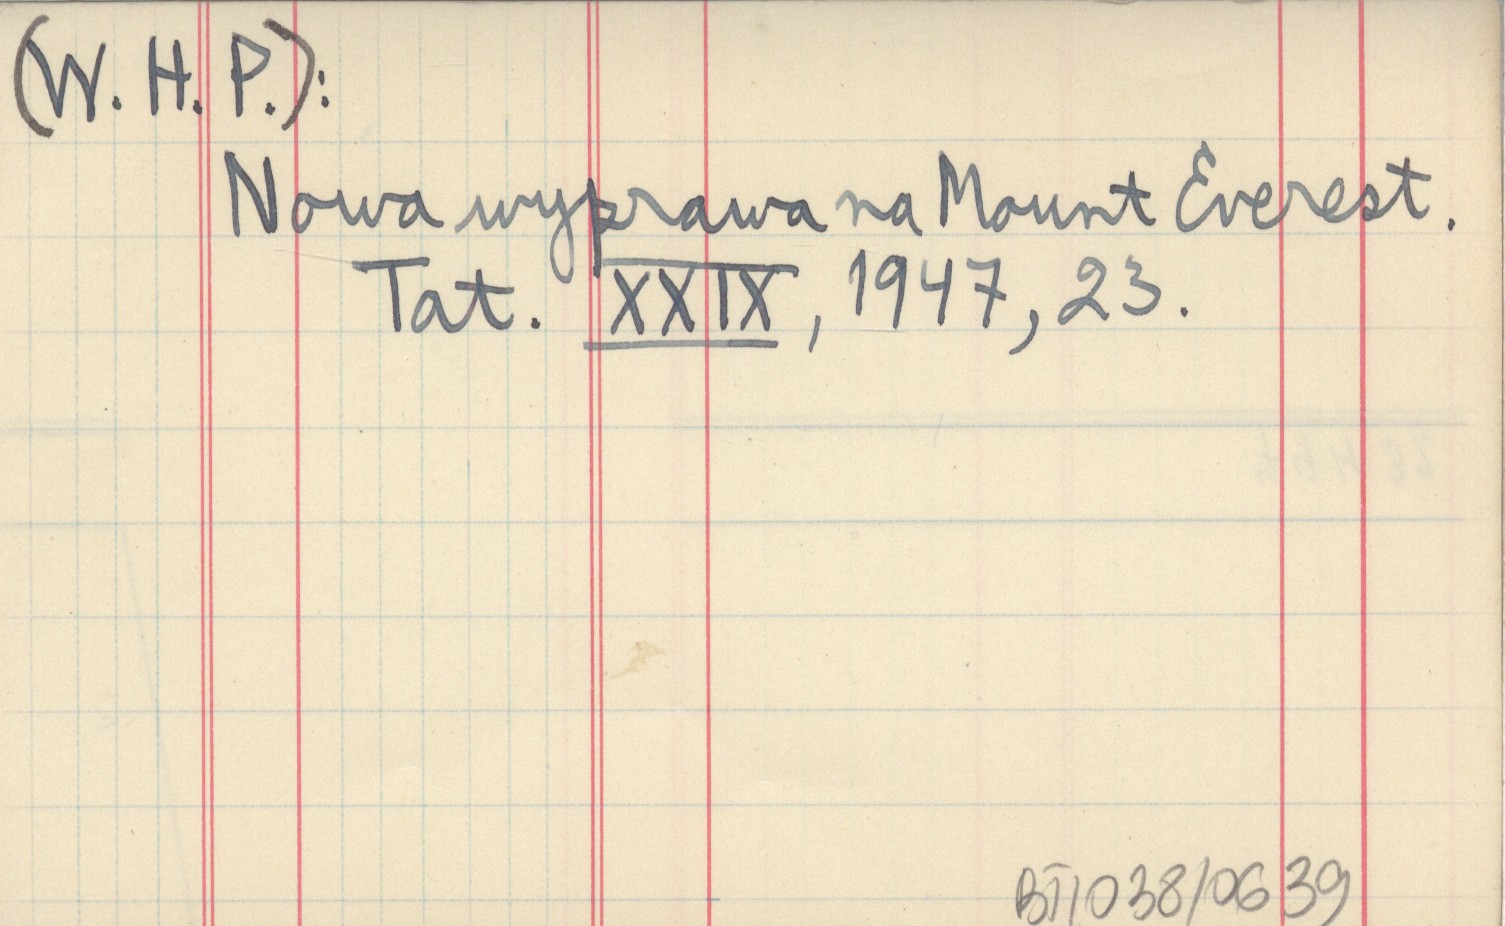 (W. H. P.):
Nowa wyprawa na Mount Everest.
Tat. XXIX, 1947, 23.
BT/038/0639